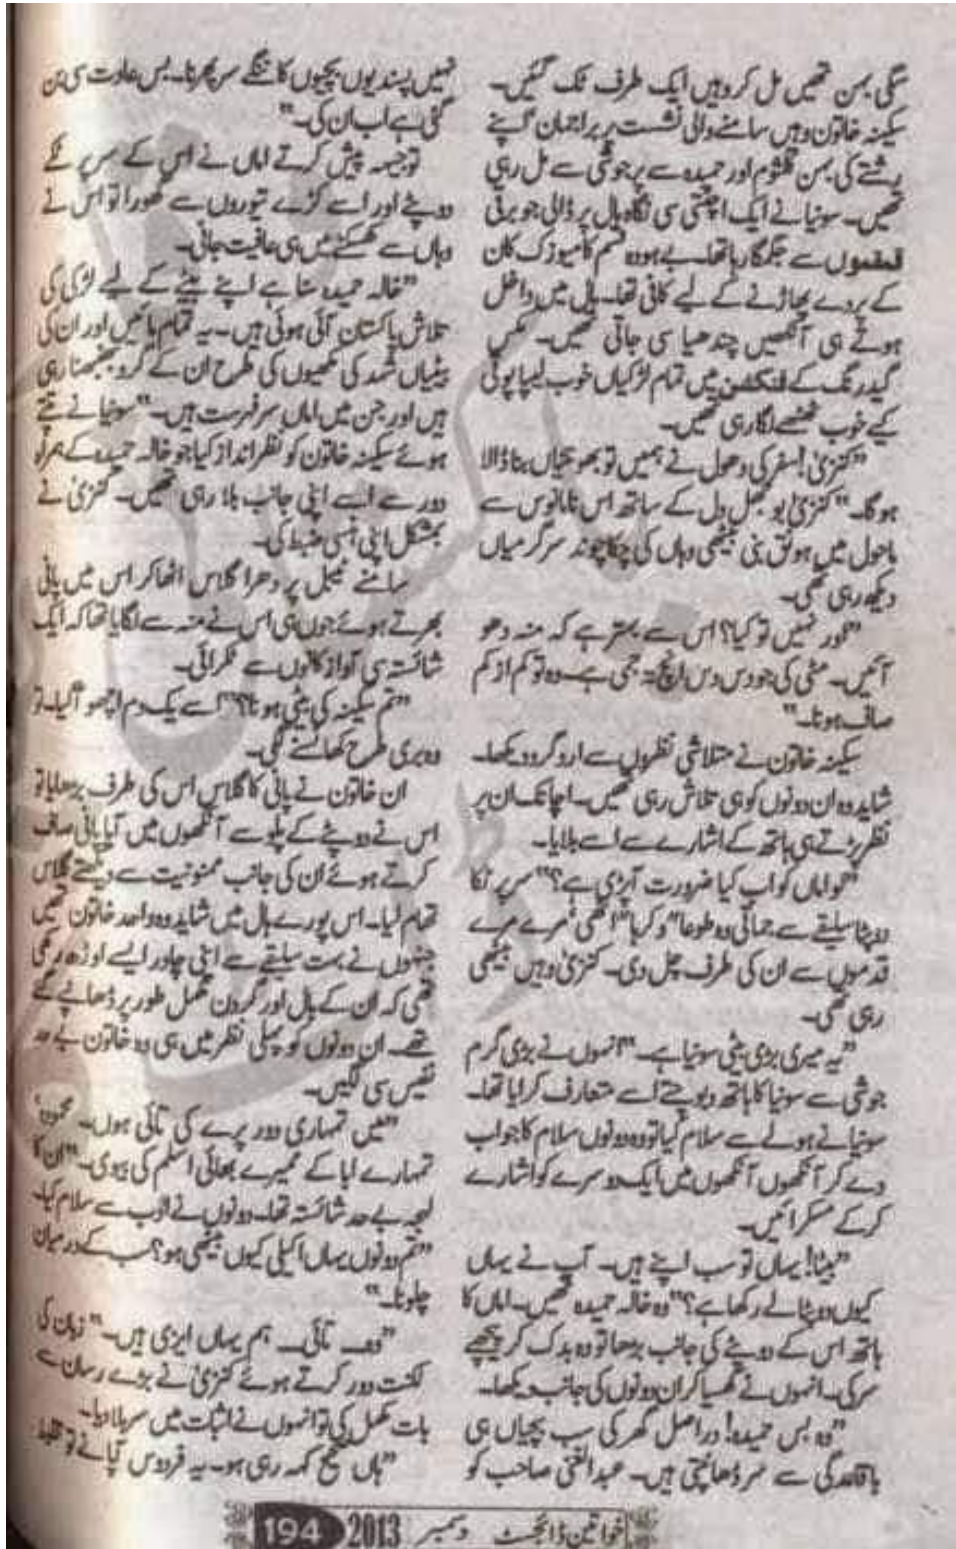 سگی بہن تھیں مل کر وہیں ایک طرف ٹک گئیں۔
سکینہ خاتون وہیں سامنے والی نشست پر براجمان اپنے
رشتے کی بہن کلثوم اور حمیدہ سے پرجوشی سے مل رہی
تھیں۔ سونیا نے ایک اچٹتی سی نگاہ ہال پر ڈالی جو برقی
قمقموں سے جگمگا رہا تھا۔ بے ہودہ قسم کا میوزک کان
کے پردے پھاڑنے کے لیے کافی تھا۔ ہال میں داخل
ہوتے ہی آنکھیں چندھیا سی جاتی تھیں۔ مکس
گیدرنگ کے فنکشن میں تمام لڑکیاں خوب لیپا پوتی
کیے خوب ٹھٹھے لگا رہی تھیں۔
”کنزیٰ! سفر کی دھول نے ہمیں تو بھوتنیاں بنا ڈالا
ہوگا۔“ کنزیٰ بوجھل دل کے ساتھ اس نامانوس سے
ماحول میں ہونق بنی بیٹھی وہاں کی چکاچوند سرگرمیاں
دیکھ رہی تھی۔
”اور نہیں تو کیا؟ اس سے بہتر ہے کہ منہ دھو
آئیں۔ مٹی کی جو دس دس انچ تہ جمی ہے۔ وہ تو کم از کم
صاف ہو نا۔“
سکینہ خاتون نے متلاشی نظروں سے ارد گرد دیکھا۔
شاید وہ ان دونوں کو ہی تلاش رہی تھیں۔ اچانک ان پر
نظر پڑتے ہی ہاتھ کے اشارے سے اسے بلایا۔
”لو اماں کو اب کیا ضرورت آپڑی ہے؟“ سر پر ٹکا
دوپٹا سلیقے سے جماتی وہ طوعا“ و کرہا“ اٹھی مرے مرے
قدموں سے ان کی طرف چل دی۔ کنزیٰ وہیں بیٹھی
رہی تھی۔
”یہ میری بڑی بیٹی سونیا ہے۔“ انہوں نے بڑی گرم
جوشی سے سونیا کا ہاتھ دبوچتے اسے متعارف کرایا تھا۔
سونیا نے ہولے سے سلام کیا تو وہ دونوں سلام کا جواب
دے کر آنکھوں آنکھوں میں ایک دوسرے کو اشارے
کر کے مسکرائیں۔
”بیٹا! یہاں تو سب اپنے ہیں۔ آپ نے یہاں
کیوں دوپٹا لے رکھا ہے؟“ وہ خالہ حمیدہ تھیں۔ اماں کا
ہاتھ اس کے دوپٹے کی جانب بڑھا تو وہ بدک کر پیچھے
سرکی۔ انہوں نے کھسیا کر ان دونوں کی جانب دیکھا۔
”وہ بس حمیدہ! دراصل گھر کی سب بچیاں ہی
باقاعدگی سے سر ڈھانپتی ہیں۔ عبدالغنی صاحب کو
نہیں پسند یوں بچیوں کا ننگے سر پھرنا۔ بس عادت سی بن
گئی ہے اب ان کی۔“
توجیہہ پیش کرتے اماں نے اس کے سر پر ٹکے
دوپٹے اور اسے کڑے تیوروں سے گھورا تو اس نے
وہاں سے کھسکنے میں ہی عافیت جانی۔
”خالہ حمیدہ سنا ہے اپنے بیٹے کے لیے لڑکی کی
تلاش پاکستان آئی ہوئی ہیں۔ یہ تمام مائیں اور ان کی
بیٹیاں شہد کی مکھیوں کی طرح ان کے گرد بھنبھنا رہی
ہیں اور جن میں اماں سر فہرست ہیں۔“ سونیا نے ہنستے
ہوئے سکینہ خاتون کو نظر انداز کیا جو خالہ حمیدہ کے ہمراہ
دور سے اسے اپنی جانب بلا رہی تھیں۔ کنزیٰ نے
بمشکل اپنی ہنسی ضبط کی۔
سامنے ٹیبل پر دھرا گلاس اٹھا کر اس میں پانی
بھرتے ہوئے جوں ہی اس نے منہ سے لگایا تھا کہ ایک
شائستہ سی آواز کانوں سے ٹکرائی۔
”تم سکینہ کی بیٹی ہو نا؟“ اسے یک دم اچھو آ گیا۔ تو
وہ بری طرح کھانسنے لگی۔
ان خاتون نے پانی کا گلاس اس کی طرف بڑھایا تو
اس نے دوپٹے کے پلو سے آنکھوں میں آیا پانی صاف
کرتے ہوئے ان کی جانب ممنونیت سے دیکھتے گلاس
تھام لیا۔ اس پورے ہال میں شاید وہ واحد خاتون تھیں
جنہوں نے بہت سلیقے سے اپنی چادر ایسے اوڑھ رکھی
تھی کہ ان کے بال اور گردن مکمل طور پر ڈھانپے گئے
تھے۔ ان دونوں کو پہلی نظر میں ہی وہ خاتون بے حد
نفیس سی لگیں۔
”میں تمہاری دور پرے کی تائی ہوں۔
تمہارے ابا کے ممیرے بھائی اسلم کی بیوی۔“ ان کا
لہجہ بے حد شائستہ تھا۔ دونوں نے ادب سے سلام کیا۔
”تم دونوں یہاں اکیلی کیوں بیٹھی ہو؟ سب کے درمیان
چلو نا۔“
”وہ۔ تائی۔ ہم یہاں ایزی ہیں۔“ زبان کی
لکنت دور کرتے ہوئے کنزیٰ نے بڑے رسان سے
بات مکمل کی تو انہوں نے اثبات میں سر ہلا دیا۔
”ہاں صحیح کہہ رہی ہو۔ یہ فردوس آپا نے تو
خواتین ڈائجسٹ دسمبر 2013 194